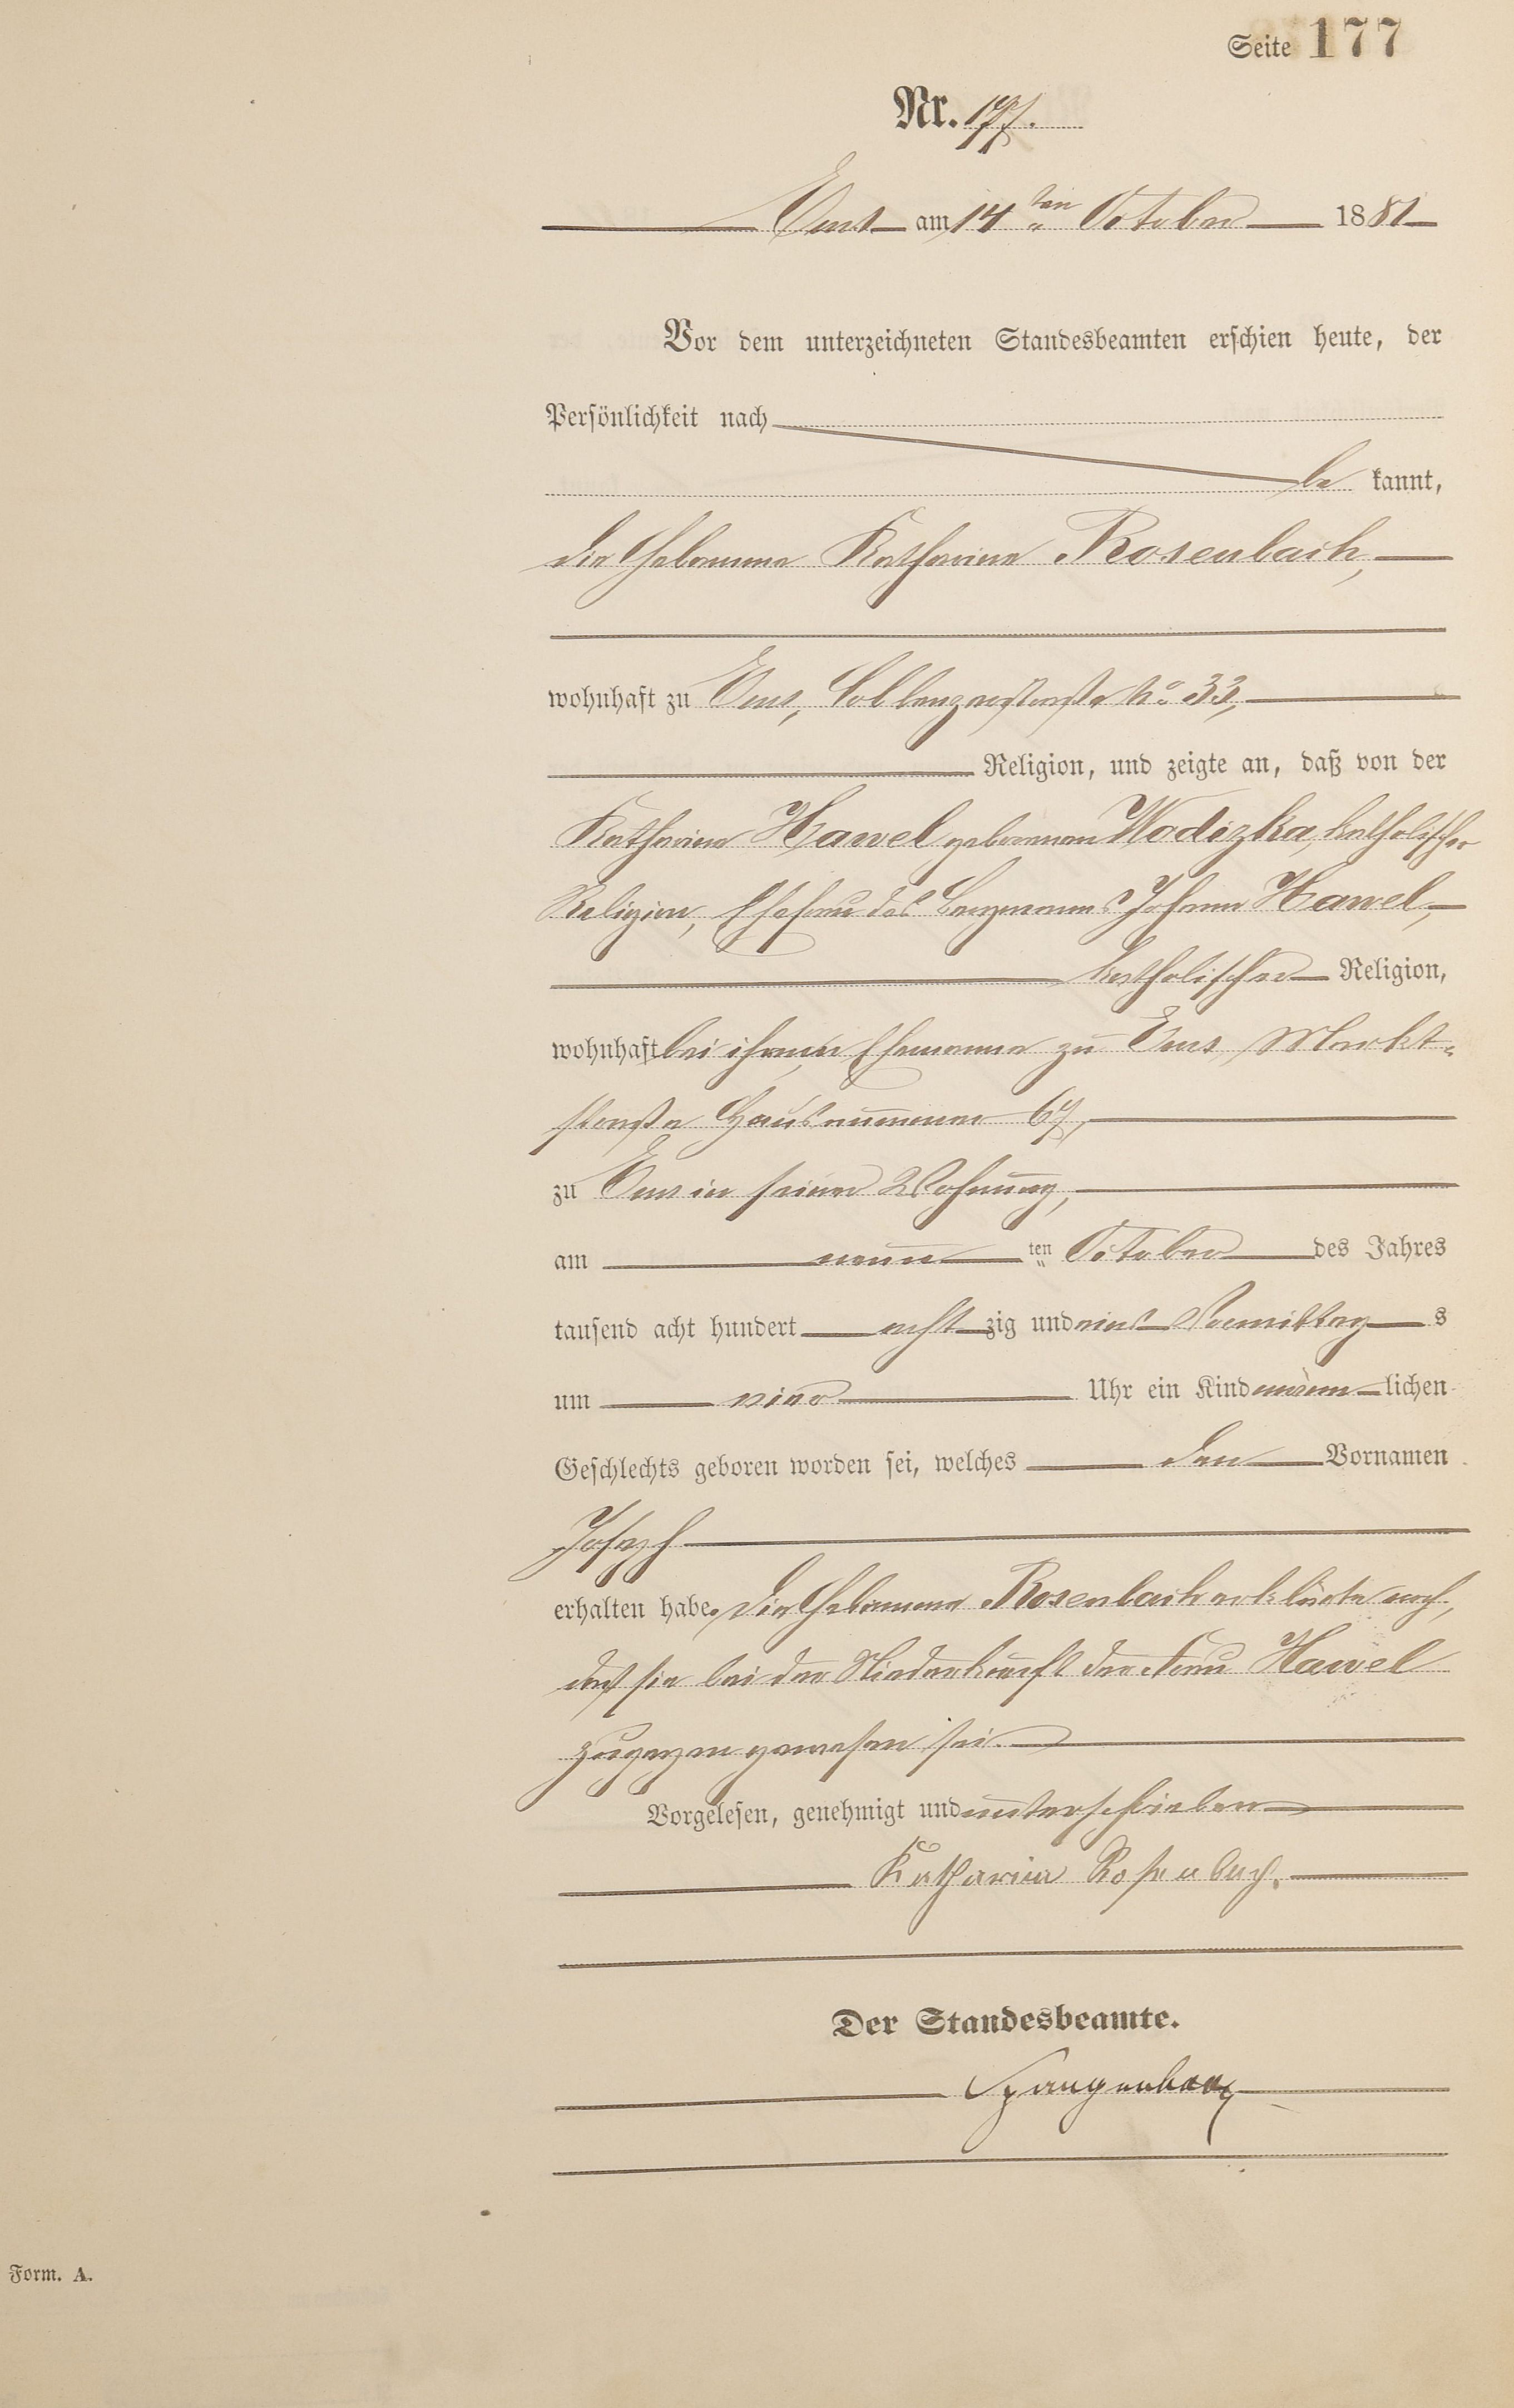 Seite 177
Nr. 177.
Ems am 14ten October 1881
Vor dem unterzeichneten Standesbeamten erschien heute, der
Persönlichkeit nach
be kannt,
die Hebamme Katharina Rosenbach,
wohnhaft zu Ems, Coblenzerstraße No. 33,
Religion, und zeigte an, daß von der
Katharina Hawel geborenen Wodizka, katholischer
Religion, Ehefrau des Bergmanns Johann Hawel,
katholischer Religion,
wohnhaft bei ihrem Ehemanne zu Ems, Markt-
straße Hausnummer 67,
zu Ems in seiner Wohnung,
am neun ten October des Jahres
tausend acht hundert acht zig und eins Vormittag s
um vier Uhr ein Kind männ lichen
Geschlechts geboren worden sei, welches den Vornamen
Joseph
erhalten habe. Die Hebamme Rosenbach erklärte noch,
daß sie bei der Niederkunft der Frau Hawel
zugegen gewesen sei.
Vorgelesen, genehmigt und unterschrieben
Katharina Rosenbach.
Der Standesbeamte.
Spangenberg
Form. A.